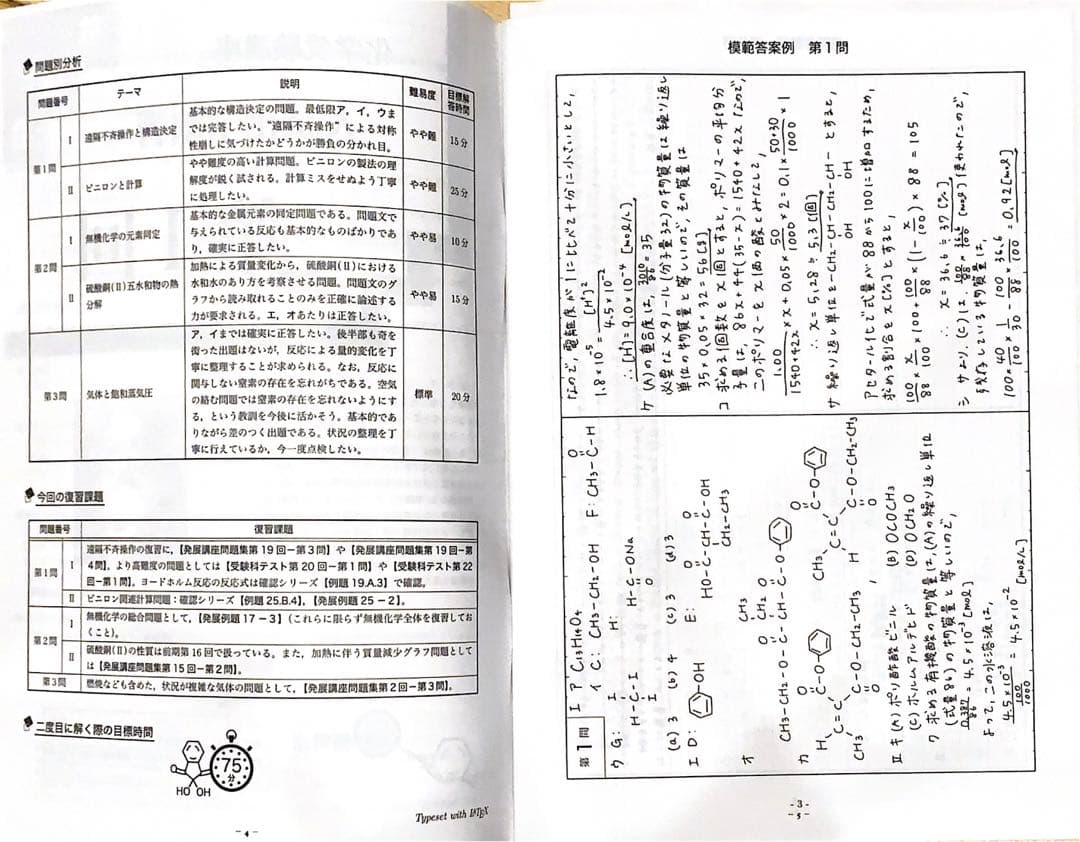 問題別分析
問題番号 テーマ 説明 難易度 目標解答時間
第1問 I 遠隔不斉操作と構造決定 基本的な構造決定の問題。最低限ア，イ，ウまでは完答したい。“遠隔不斉操作”による対称性崩しに気づけたかどうかが勝負の分かれ目。 やや難 15分
II ビニロンと計算 やや難度の高い計算問題。ビニロンの製法の理解度が鋭く試される。計算ミスをせぬよう丁寧に処理したい。 やや難 25分
第2問 I 無機化学の元素同定 基本的な金属元素の同定問題である。問題文で与えられている反応も基本的なものばかりであり，確実に正答したい。 やや易 10分
II 硫酸銅(II)五水和物の熱分解 加熱による質量変化から，硫酸銅(II)における水和水のあり方を考察させる問題。問題文のグラフから読み取れることのみを正確に論述する力が要求される。エ，オあたりは正答したい。 やや易 15分
第3問 気体と飽和蒸気圧 ア，イまでは確実に正答したい。後半部も奇を衒った出題はないが，反応による量的変化を丁寧に整理することが求められる。なお，反応に関与しない窒素の存在を忘れがちである。空気の絡む問題では窒素の存在を忘れないようにする，という教訓を今後に活かそう。基本的でありながら差のつく出題である。状況の整理を丁寧に行えているか，今一度点検したい。 標準 20分
今回の復習課題
問題番号 復習課題
第1問 I 遠隔不斉操作の復習に，【発展講座問題集第19回−第3問】や【発展講座問題集第19回−第4問】。より高難度の問題としては【受験科テスト第20回−第1問】や【受験科テスト第22回−第1問】。ヨードホルム反応の反応式は確認シリーズ【例題19.A.3】で確認。
II ビニロン関連計算問題：確認シリーズ【例題25.B.4】，【発展例題25−2】。
第2問 I 無機化学の総合問題として，【発展例題17−3】（これらに限らず無機化学全体を復習しておくこと）。
II 硫酸銅(II)の性質は前期第16回で扱っている。また，加熱に伴う質量減少グラフ問題としては【発展講座問題集第15回−第2問】。
第3問 燃焼なども含めた，状況が複雑な気体の問題として，【発展講座問題集第2回−第3問】。
二度目に解く際の目標時間
75分
HO OH
Typeset with LATEX
- 4 -
模範答案例 第1問
第1問
I ア C13H14O4
イ C: CH3-CH2-OH F: CH3-C-H
O
ウ G: H-C-I H: H-C-ONa
I I O
(a) 3 (b) 4 (c) 3 (d) 3
エ D: -OH E: HO-C-CH-C-OH
O O
CH2-CH3
オ CH3-CH2-O-C-CH-C-O-
CH3
CH2
O O
カ
H CH3 C=C C-O- C-O-CH2-CH3 O O ,
CH3 H C=C C-O- C-O-CH2-CH3 O O
II キ (A) ポリ酢酸ビニル (B) OCOCH3
(C) ホルムアルデヒド (D) OCH2O
ク 求める有機酸の物質量は，(A)の繰り返し単位
(式量86)の物質量と等しいので，
0.387/86 = 4.5×10⁻³ [mol]
よって，この水溶液は，
4.5×10⁻³ / (100/1000) = 4.5×10⁻² [mol/L]
なので，電離度が1に比べて十分に小さいとして，
1.8×10⁻⁵ = [H⁺]² / 4.5×10⁻²
∴ [H⁺] = 9.0×10⁻⁴ [mol/L]
ケ (A)の重合度は，3010/86 = 35
必要なメタノール(分子量32)の物質量は繰り返し
単位の物質量と等しいので，その質量は
35×0.05×32 = 56 [g]
コ 求める回数をx回とすると，ポリマーの平均分
子量は，86x+44(35-x)=1540+42x なので，
このポリマーをx価の酸とみなして，
1.00/(1540+42x) × x + 0.05 × 50/1000 × 2 = 0.1 × (50+30)/1000 × 1
∴ x = 5.28 ≒ 5.3 [回]
サ 繰り返し単位を -CH2-CH-CH2-CH- とすると，
OH OH
アセタール化で式量が88から100に増加するため，
求める割合をx[%]とすると，
100/88 × x/100 × 100 + 100/88 × (1 - x/100) × 88 = 105
∴ x = 36.6 ≒ 37 [%]
シ サより，(C)は 100/88 × 36.6/100 [mol] 使われたので，
残存している物質量は，
100 × 40/100 × 1/30 - 100/88 × 36.6/100 = 0.92 [mol]
- 3 -
5